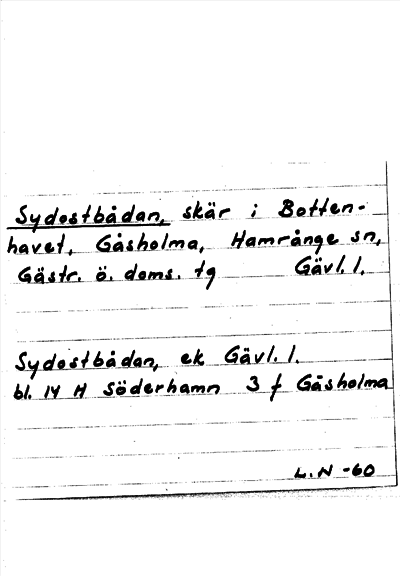 Sydostbådan, skär i Botten-
havet, Gåsholma, Hamrånge sn,
Gästr. ö. doms. tg Gävl. l.
Sydostbådan, ek Gävl. l.
bl. 14 H Söderhamn 3 f Gåsholma
L.N -60